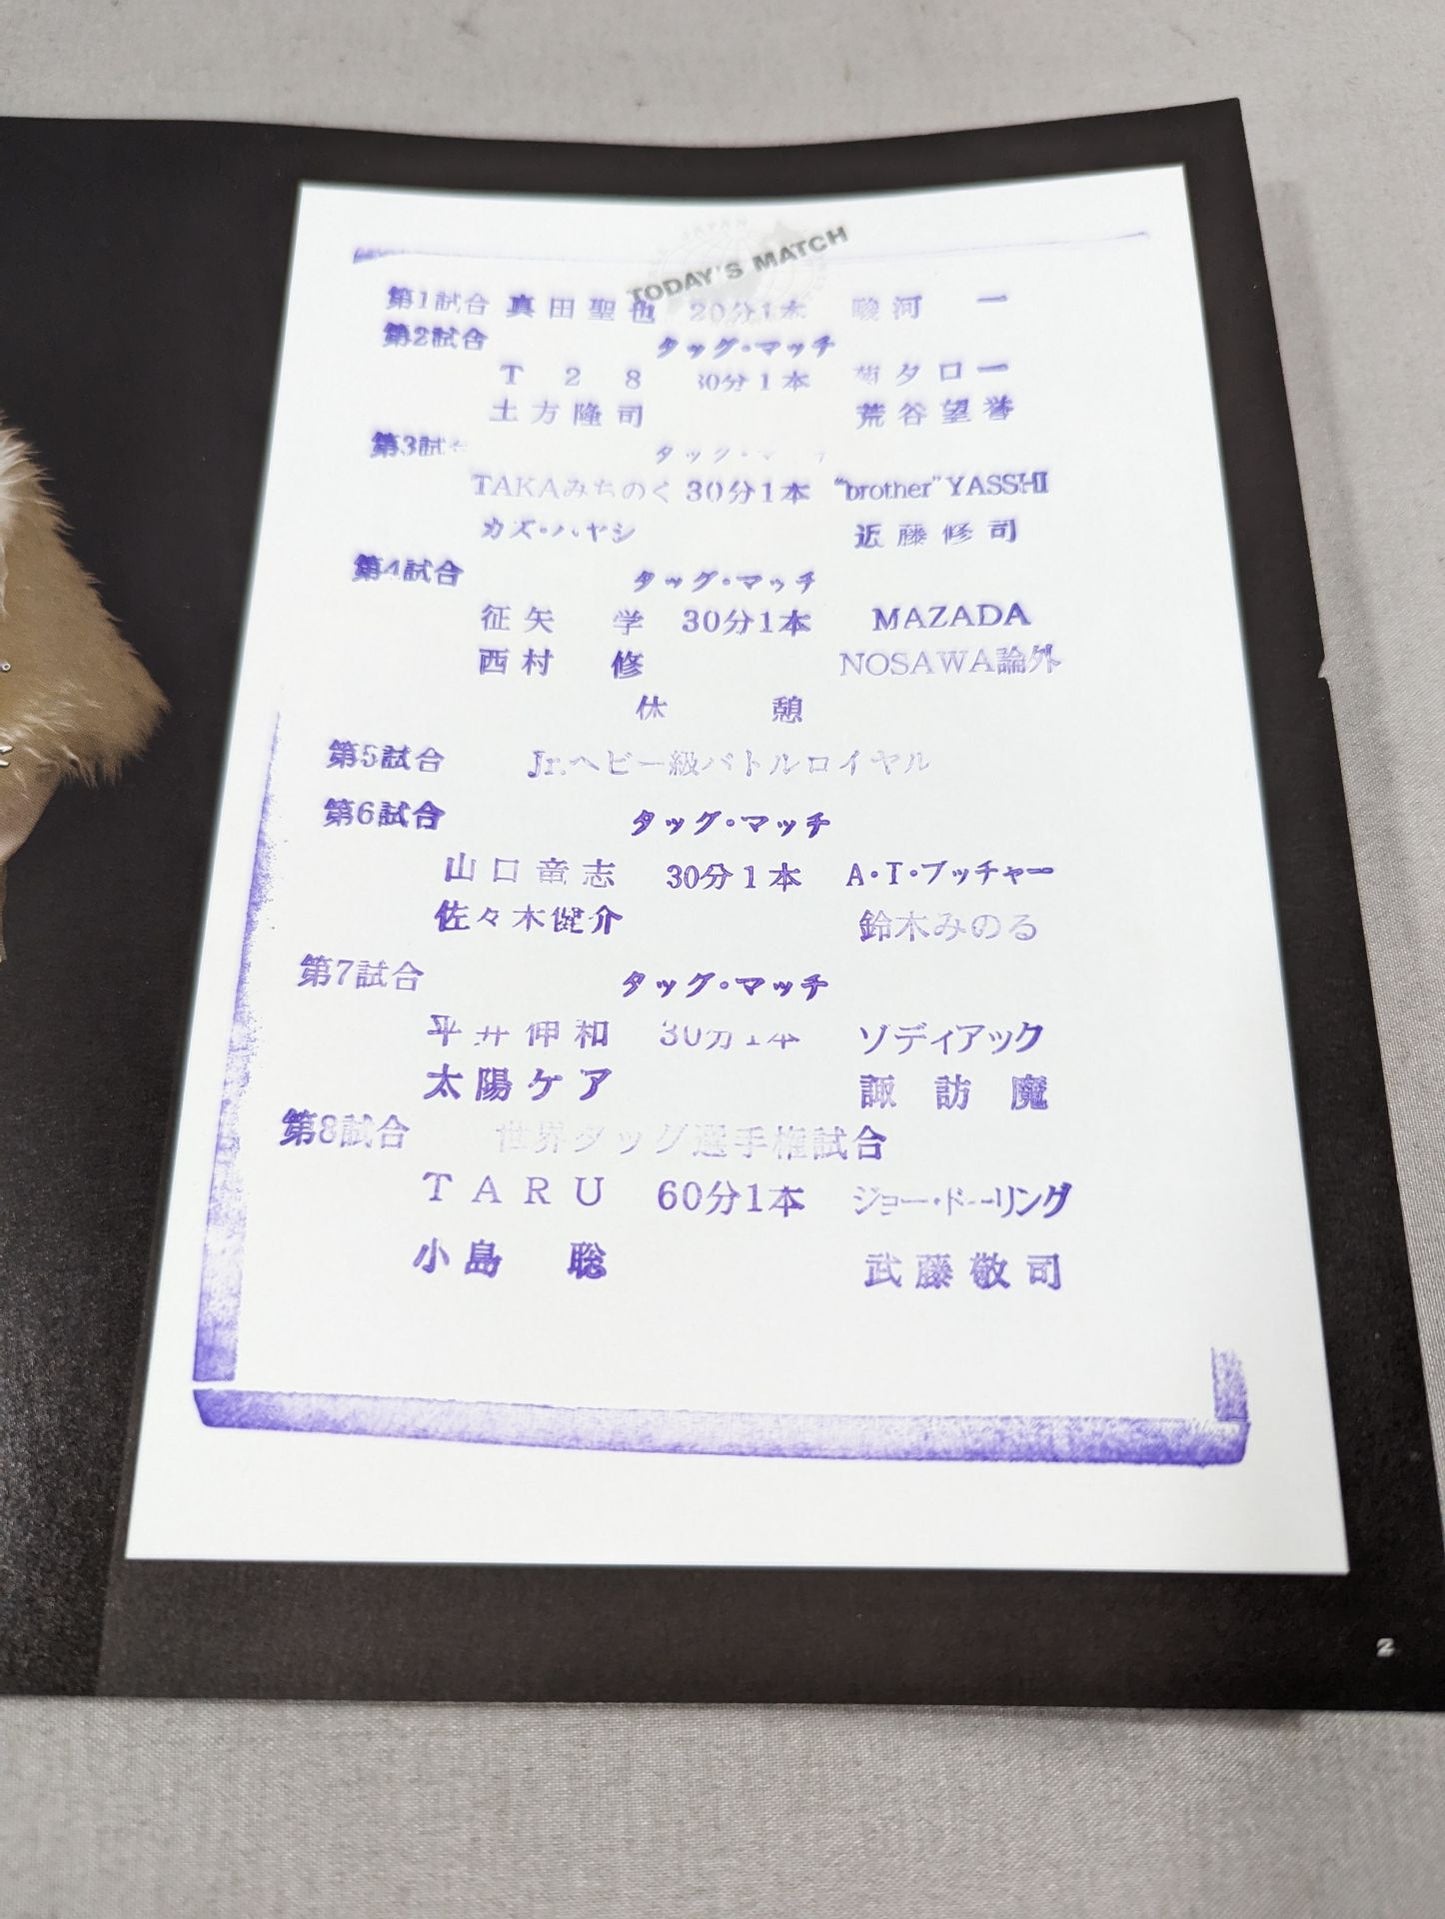 JAPAN
TODAY'S MATCH
第1試合 真田聖也 20分1本 駿河 一
第2試合 タッグ・マッチ
T28 30分1本 菊タロー
土方隆司 荒谷望誉
第3試合 タッグ・マッチ
TAKAみちのく 30分1本 "brother"YASSHI
カズ・ハヤシ 近藤修司
第4試合 タッグ・マッチ
征矢 学 30分1本 MAZADA
西村 修 NOSAWA論外
休 憩
第5試合 Jr.ヘビー級バトルロイヤル
第6試合 タッグ・マッチ
山口竜志 30分1本 A・T・ブッチャー
佐々木健介 鈴木みのる
第7試合 タッグ・マッチ
平井伸和 30分1本 ゾディアック
太陽ケア 諏訪魔
第8試合 世界タッグ選手権試合
TARU 60分1本 ジョー・ドーリング
小島 聡 武藤敬司
2